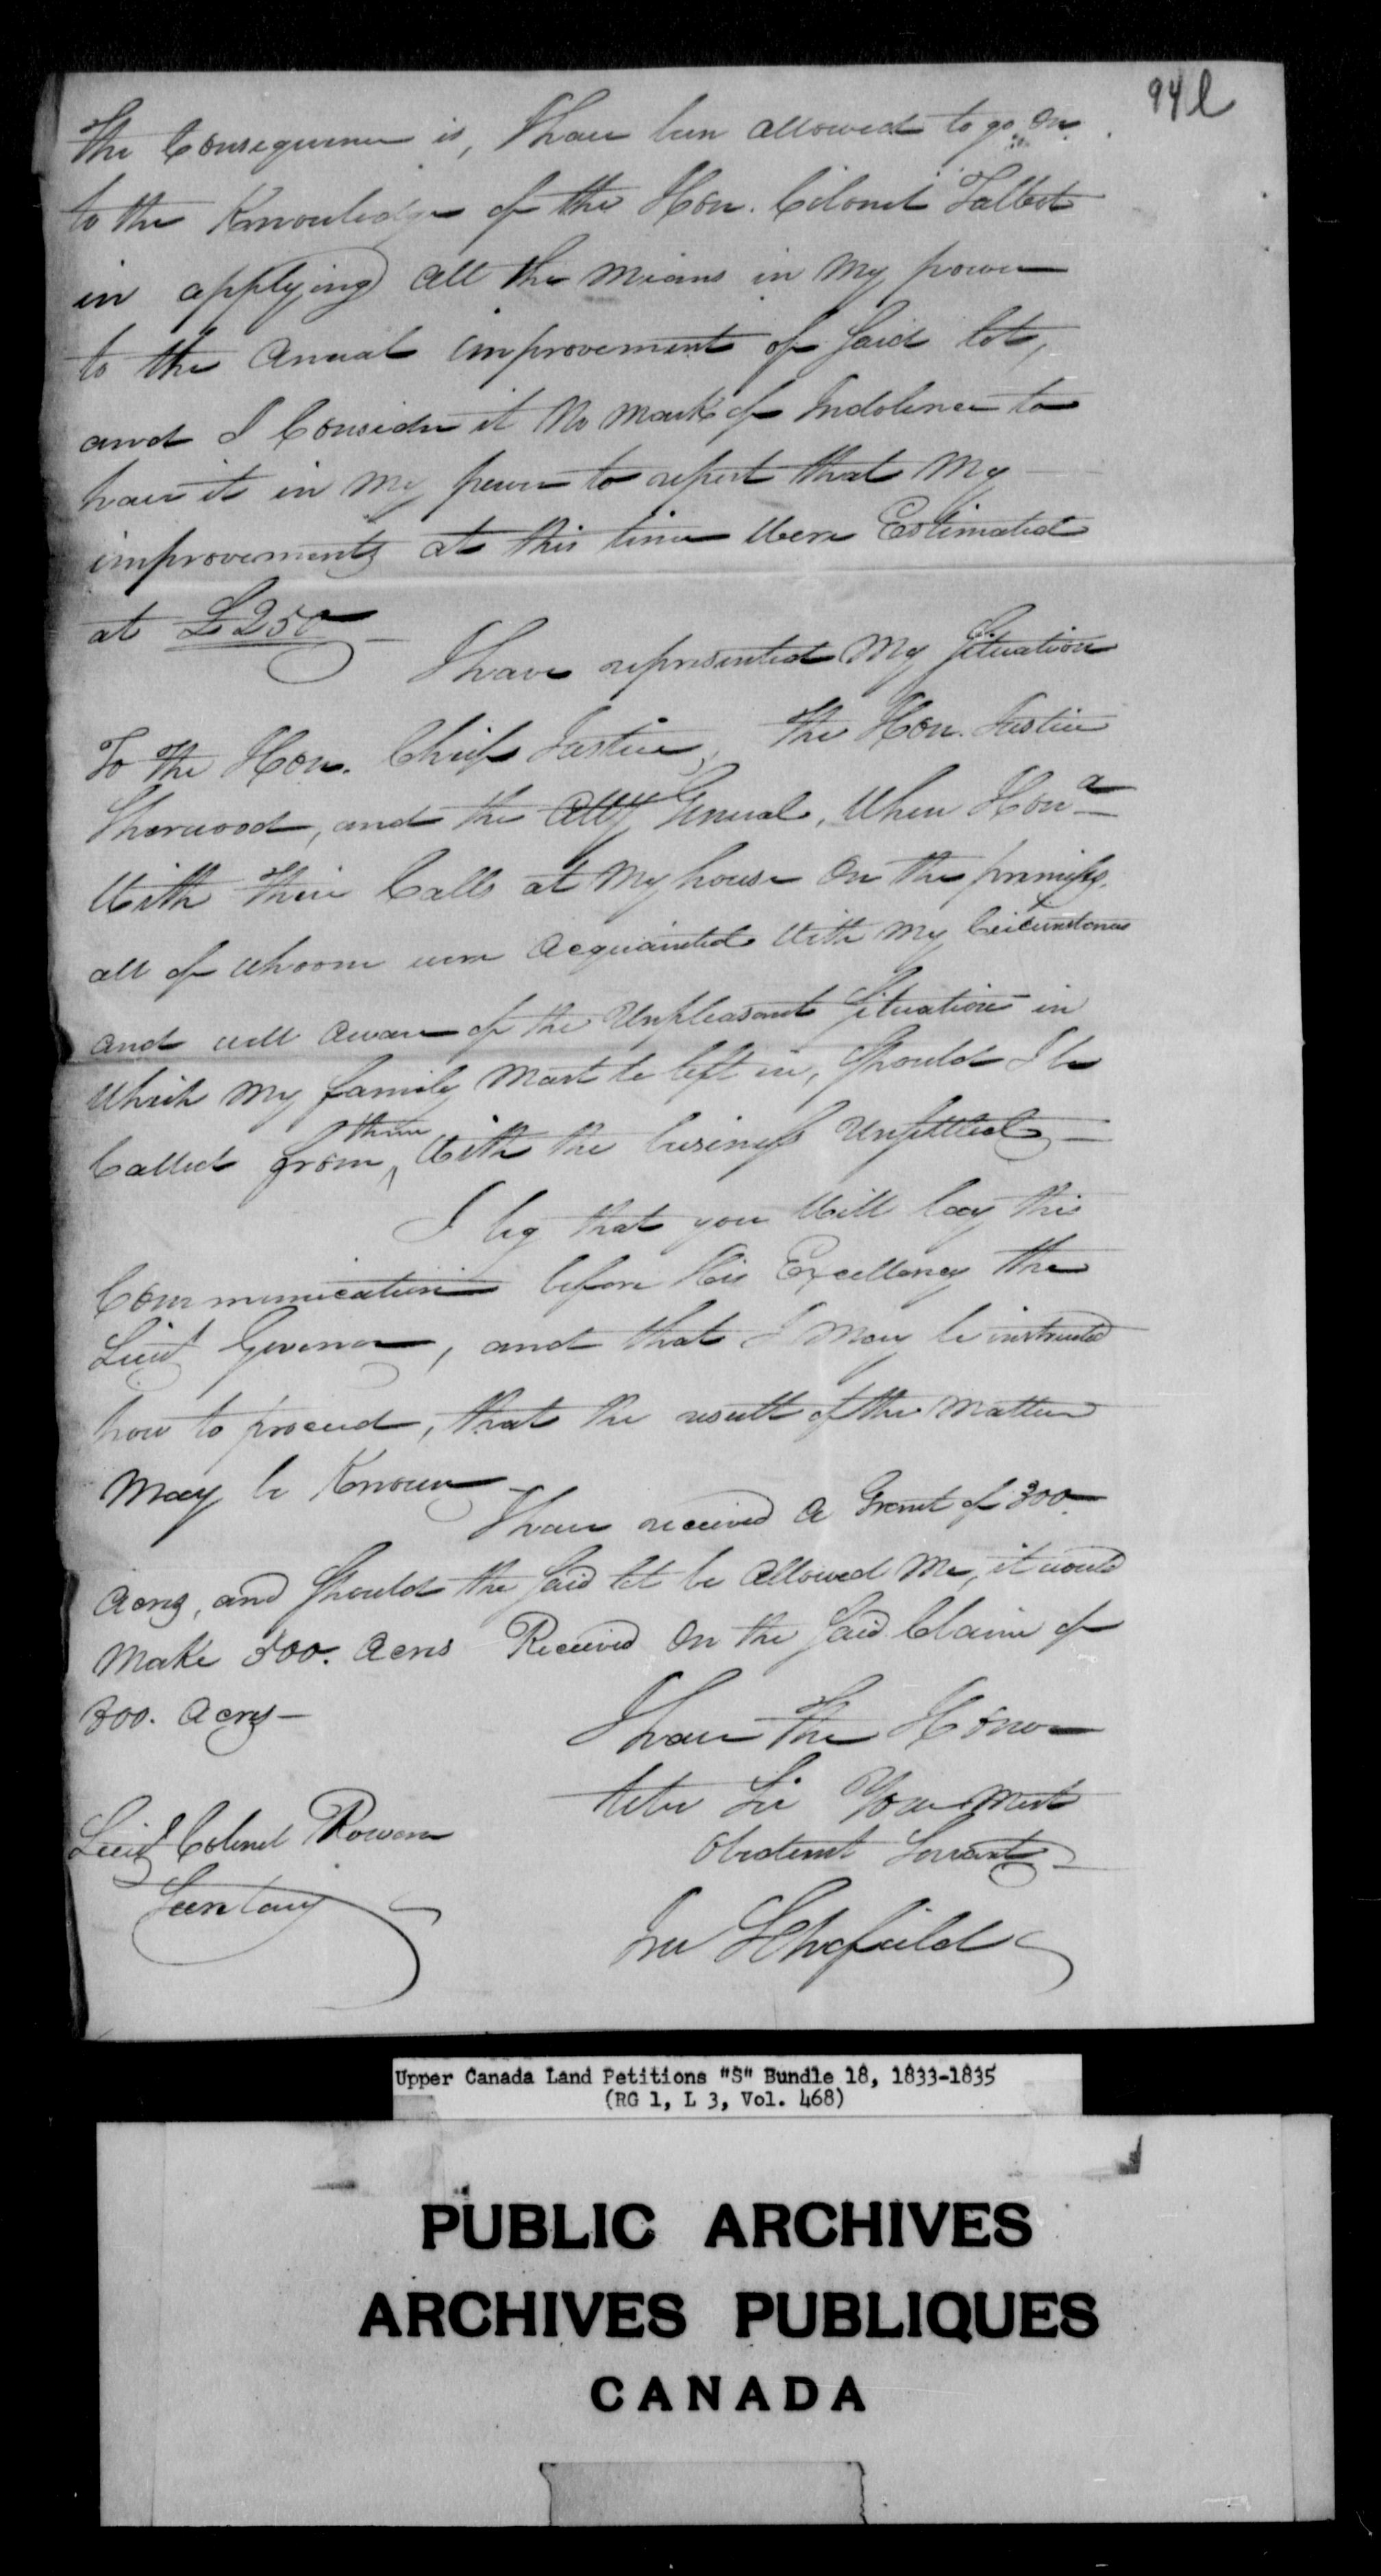 94l
The Consequence is, I have been allowed to go on
to the Knowledge of the Hon. Colonel Talbot
in applying all the means in my power
to the Anual improvement of Said lot,
and I Consider it no mark of Indolence to
have it in my power to report that My
improvements at this time were Estimated
at £250
I have represented My Situation
To the Hon. Chief Justice, the Hon. Justice
Sherwood, and the Atty General, When Hond
With their Calls at My house On the premises,
all of whoom were Acquainted With My Circumstances
and well aware of the Unpleasant Situation in
Which My family Must be left in, Should I be
Called from them With the business Unsettled
I beg that you Will lay this
Communication before His Excellency the
Lieut Govenor, and that I May be instructed
how to proceed, that the result of the Matter
May be Known
I have received A Grant of 300
Acres, and Should the Said lot be Allowed Me, it would
Make 500. Acres Received On the Said Claim of
800. Acres
I have the Honor
to be Sir Your Most
Obedient Servant
Lieut Colonel Rowan
Secretary
Schofield
Upper Canada Land Petitions "S" Bundle 18, 1833-1835
(RG 1, L 3, Vol. 468)
PUBLIC ARCHIVES
ARCHIVES PUBLIQUES
CANADA